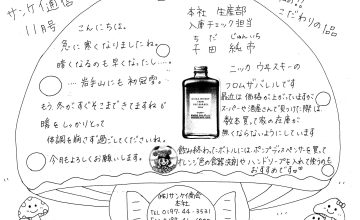 サンケイ通信
11月号
こんにちは。
急に寒くなりましたね。
暗くなるのも早くなったし…
…岩手山にも初冠雪。
もう冬がすぐそこまできてますね
暖をしっかりとって
体調を崩さず過ごしてくださいね。
今月もよろしくお願いします。
本社 生産部
入庫チェック担当
ちだ じゅんいち
千田 純市
こだわりの一品
ニッカ ウヰスキーの
フロムザバレルです
最近は価格が上がっていますが
スーパーや酒屋さんで見つけた際は
数本買って家の在庫が
無くならないようにしています
飲み終わったボトルには、ポンプディスペンサーを買って
オレンジ色の食器洗剤やハンドソープを入れて使うのも
おすすめです
(株)サンケイ商会
本社
TEL 0197-44-3531